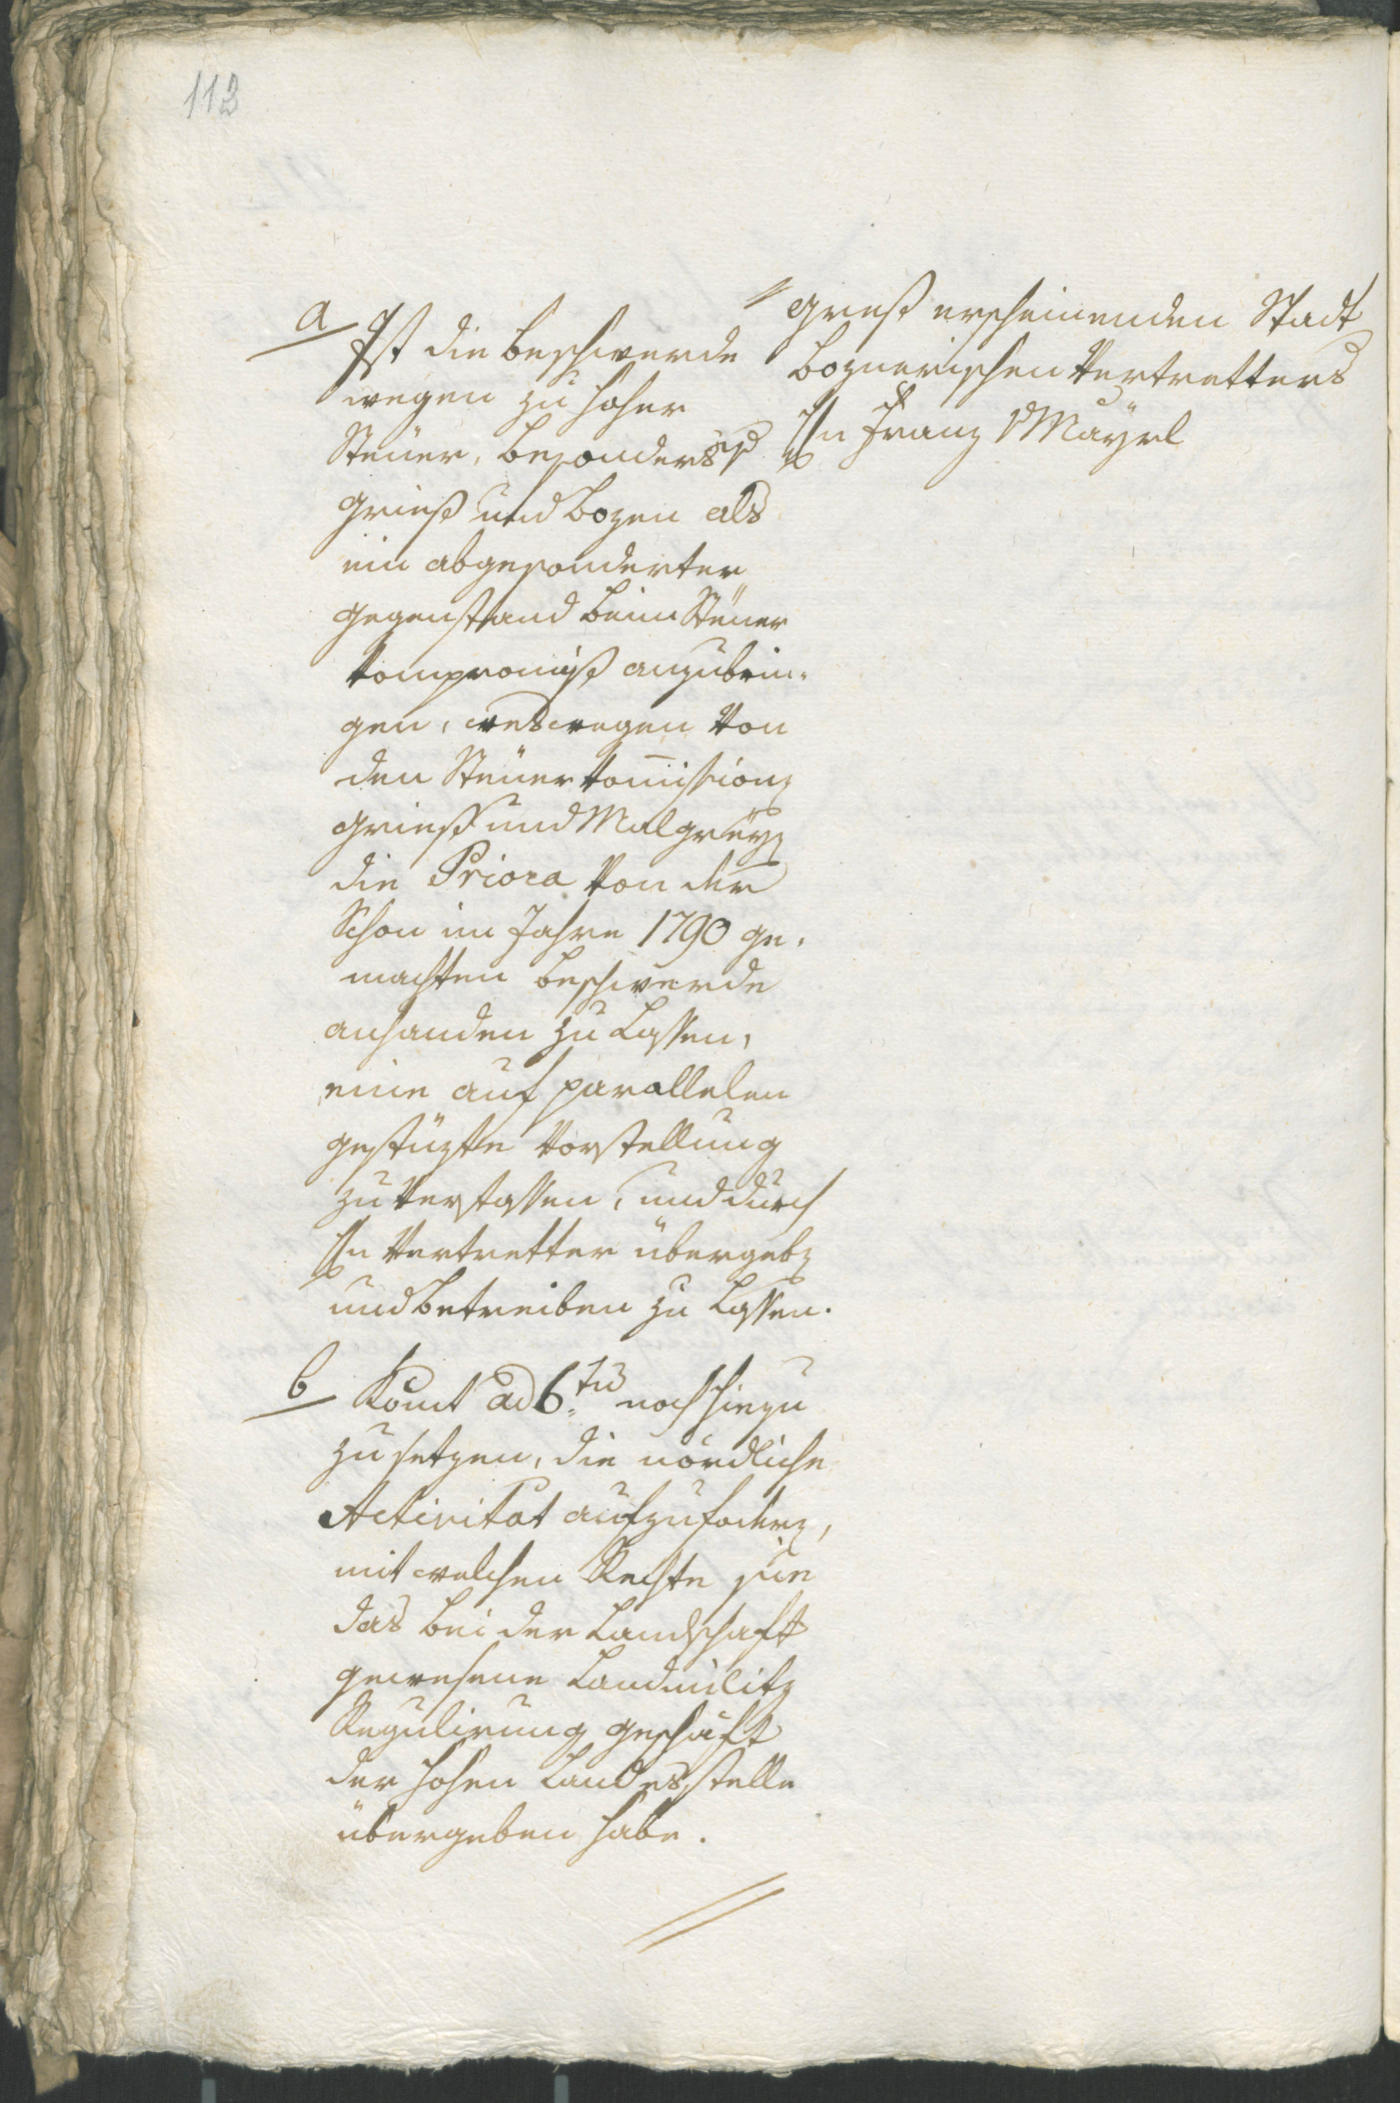 112
a
Ist die beschwerde
wegen zu hoher
Steuer, besonders
grieß und bozen als
ein abgesonderter
gegenstand beim Steuer
Kompromiß anzubrin-
gen, weswegen von
den Steuer Komission
grieß und Malgrey
die Priora von der
Schon im Jahre 1790 ge-
machten beschwerde
anhanden zu lassen,
eine auf parallelen
gestüzte Vorstellung
zu verfassen, und durch
Hn Vertretter übergeben
und betreiben zu lassen.
b
Komt ad 6tu noch hiezu
zu setzen, die nördliche
Activitat aufzufodern,
mit welchen Rechte sie
das bei der Landschaft
gewesene Landmilitz
Regulirung geschäft
der hohen Landesstelle
übergeben habe.
greß erscheinenden Stadt
boznerischen Vertretters
Hn Franz v Mayrl